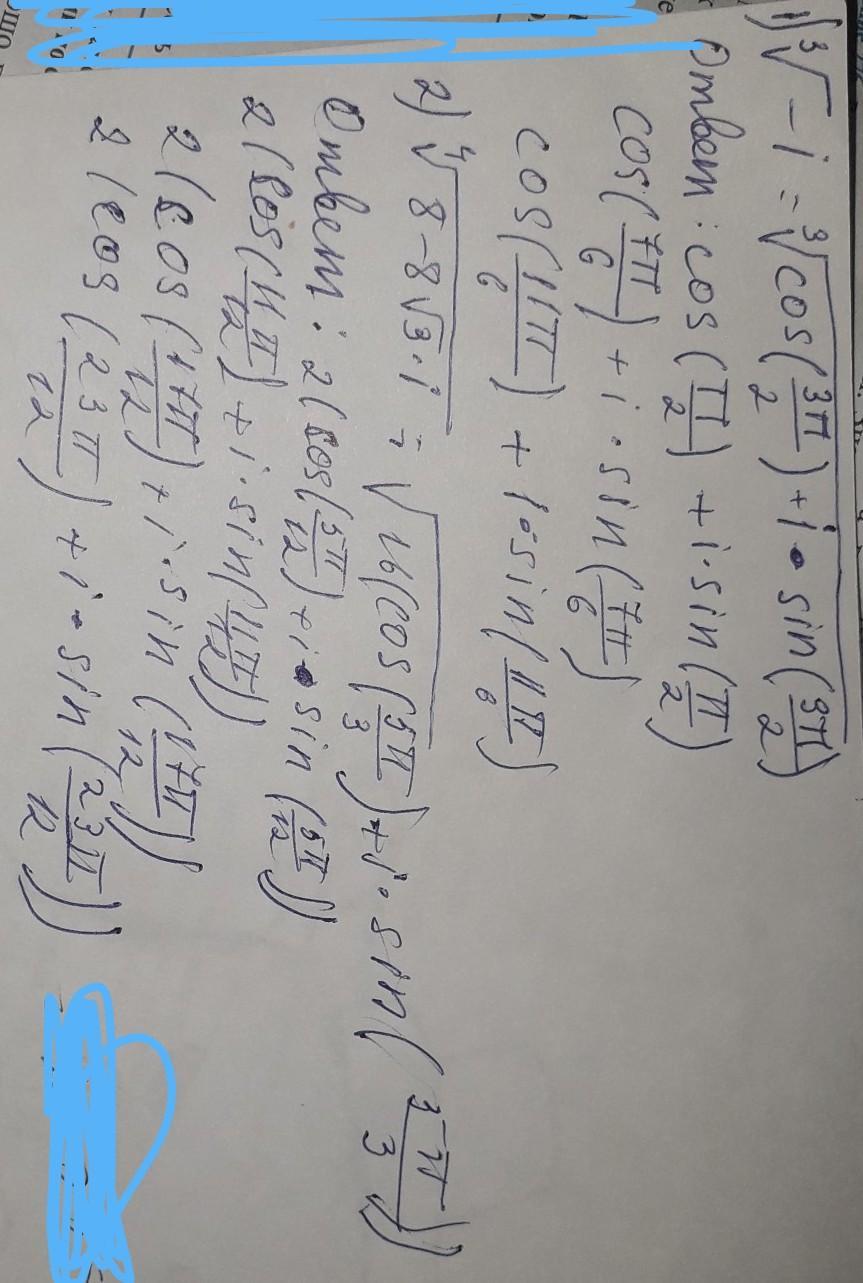 1) ∛-i = ∛cos(3π/2) + i • sin(3π/2)
Ответ: cos(π/2) + i · sin(π/2)
cos(7π/6) + i · sin(7π/6)
cos(11π/6) + i · sin(11π/6)
2) ∜8-8√3 · i = √16(cos(5π/3) + i · sin(5π/3))
Ответ: 2(cos(5π/12) + i • sin(5π/12))
2(cos(11π/12) + i · sin(11π/12))
2(cos(17π/12) + i · sin(17π/12))
2(cos(23π/12) + i · sin(23π/12))